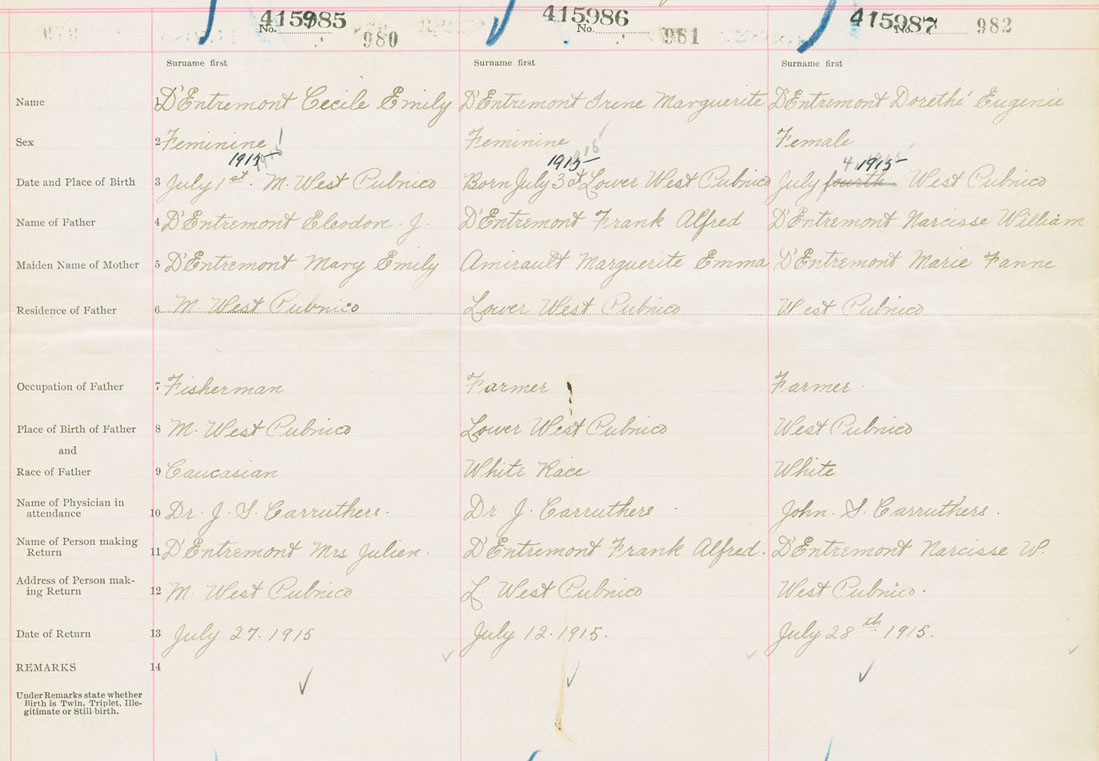 415985 415986 415987
No. 980 No. 981 No. 982
Surname first Surname first Surname first
Name 1 D'Entremont Cecile Emily D'Entremont Irene Marguerite D'Entremont Dorethé Eugenie
Sex 2 Feminine Feminine Female
1915 1915 4 1915
Date and Place of Birth 3 July 1st. M. West Pubnico Born July 3d Lower West Pubnico July fourth West Pubnico
Name of Father 4 D'Entremont Eleodon. J. D'Entremont Frank Alfred D'Entremont Narcisse William
Maiden Name of Mother 5 D'Entremont Mary Emily Amirault Marguerite Emma D'Entremont Marie Fanne
Residence of Father 6 M. West Pubnico Lower West Pubnico West Pubnico
Occupation of Father 7 Fisherman Farmer Farmer
Place of Birth of Father 8 M. West Pubnico Lower West Pubnico West Pubnico
and
Race of Father 9 Caucasian White Race White
Name of Physician in
attendance 10 Dr. J. S. Carruthers. Dr. J. Carruthers John. S. Carruthers.
Name of Person making
Return 11 D'Entremont Mrs Julien. D'Entremont Frank Alfred. D'Entremont Narcisse W.
Address of Person mak-
ing Return 12 M. West Pubnico L. West Pubnico West Pubnico.
Date of Return 13 July 27. 1915 July 12. 1915. July 28th. 1915.
REMARKS 14
Under Remarks state whether
Birth is Twin, Triplet, Ille-
gitimate or Still-birth.